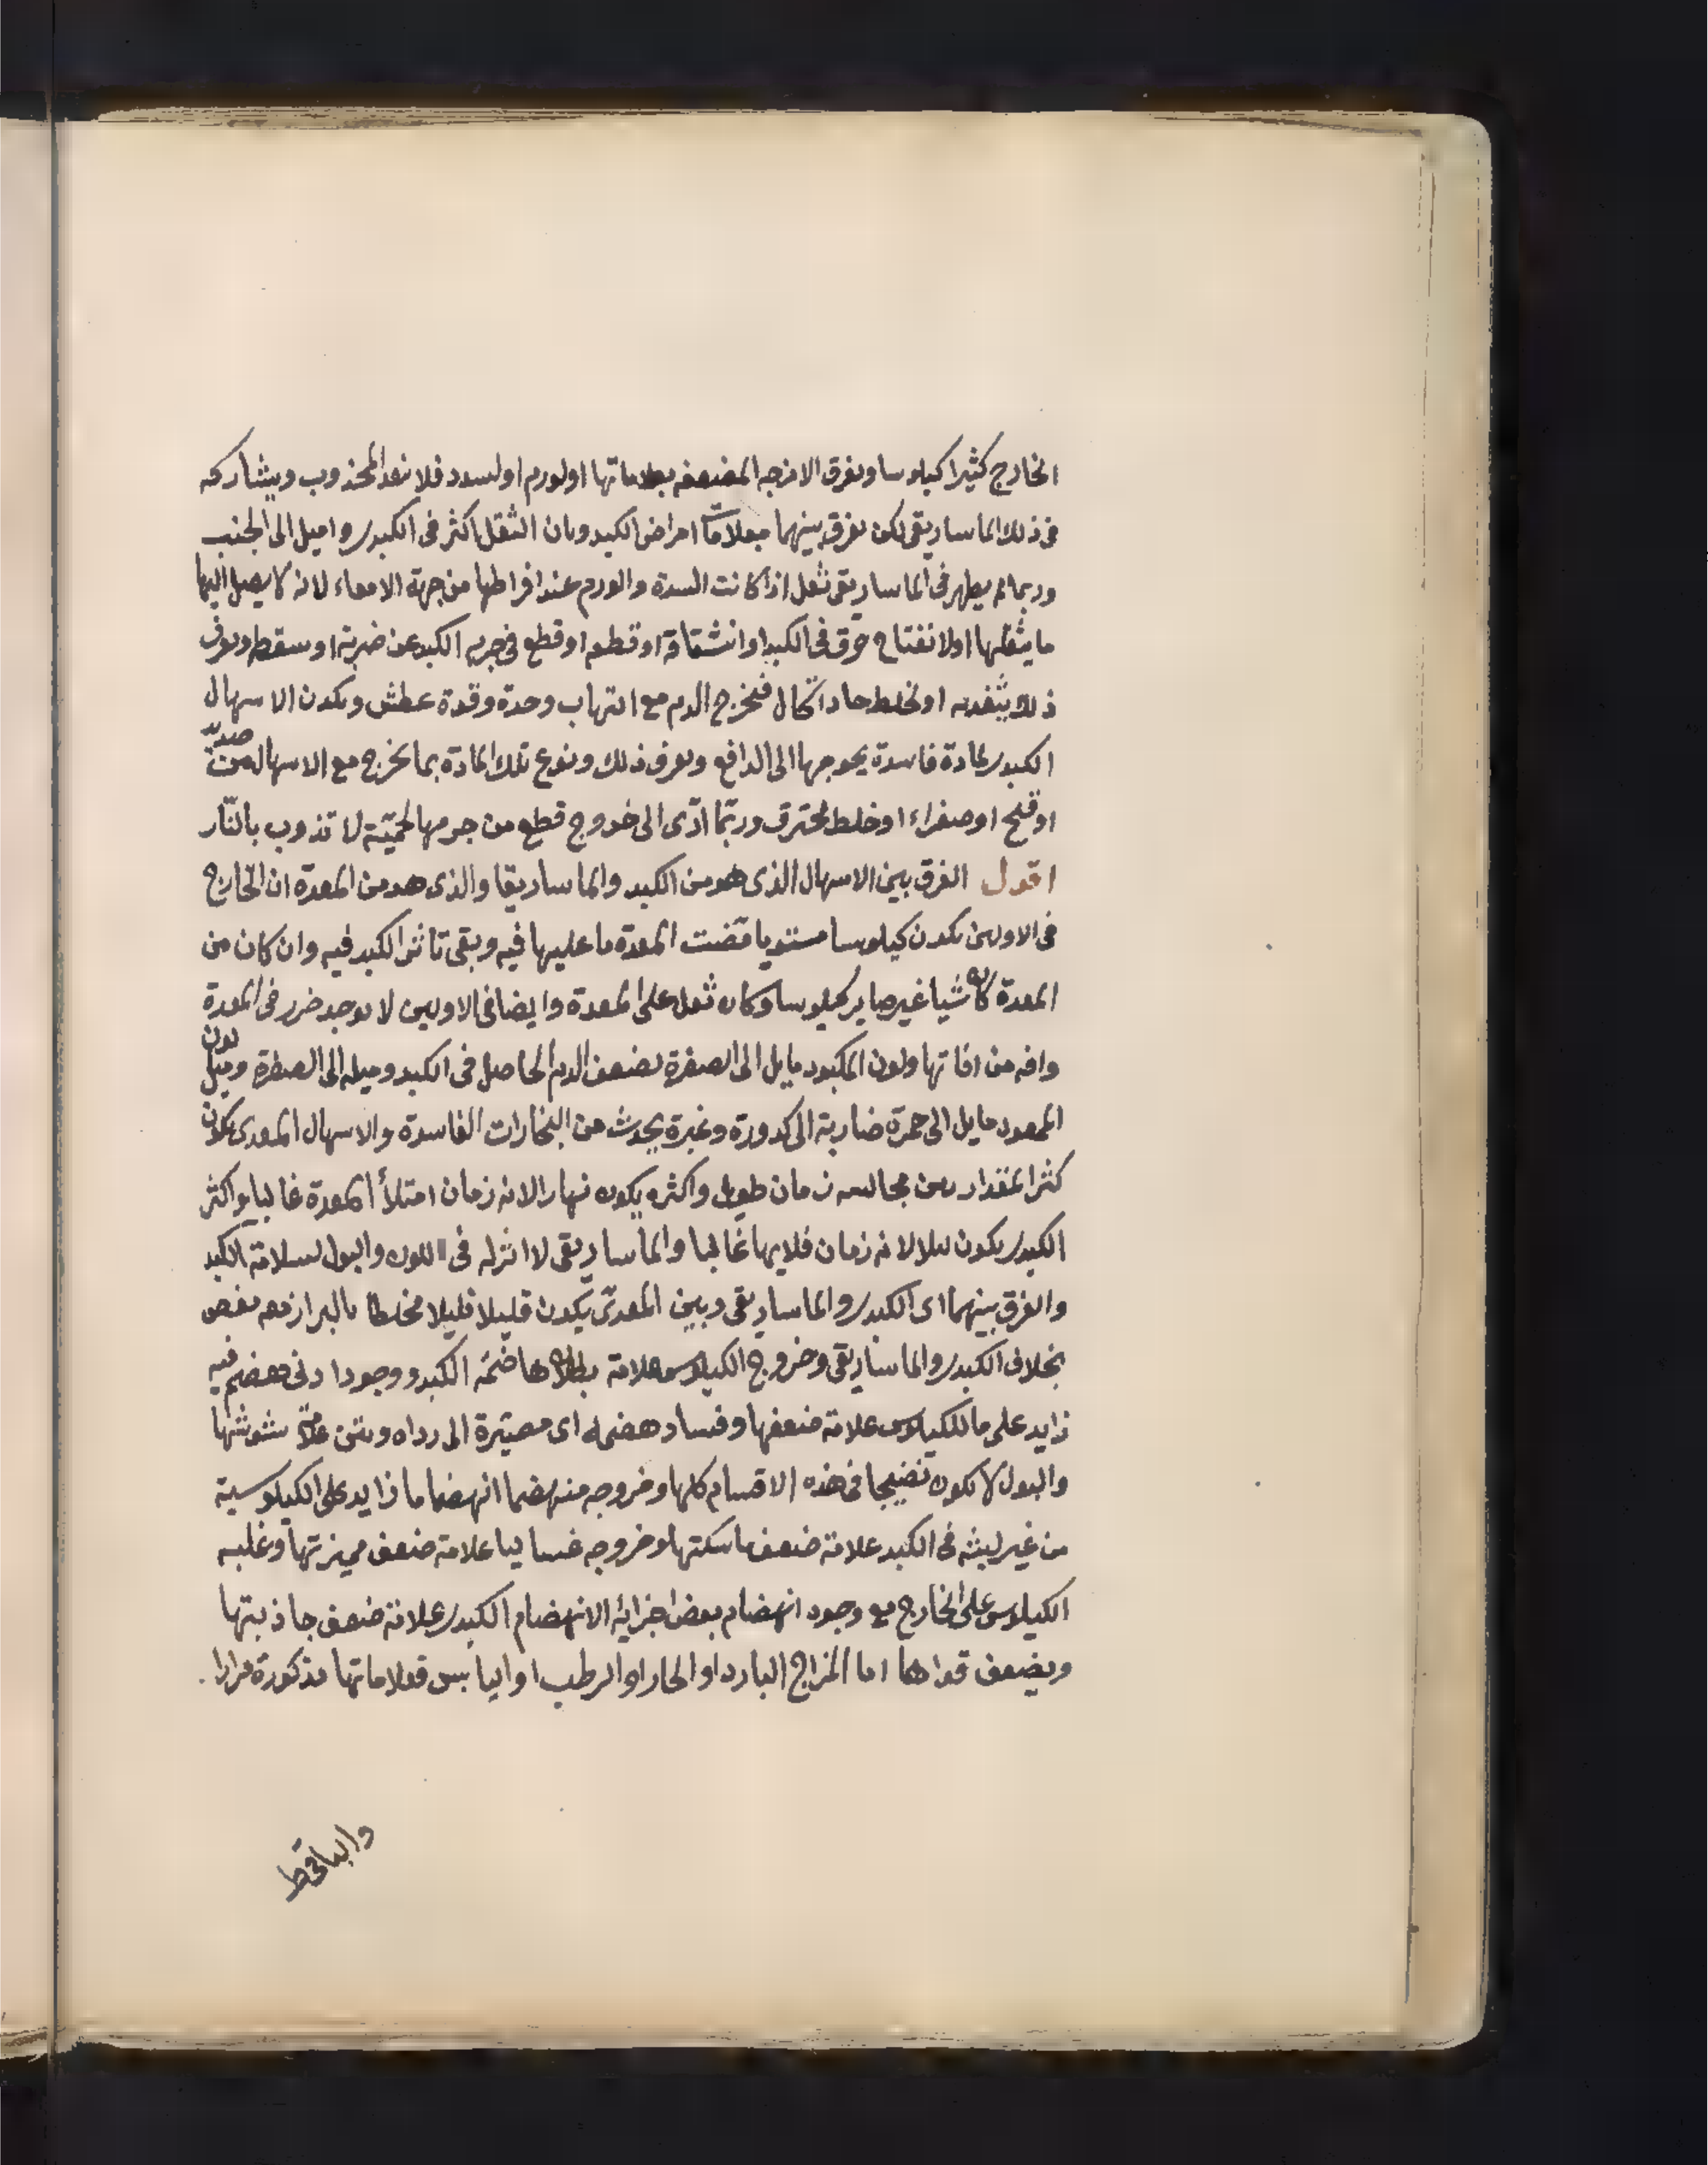 الخارج كثيرا كيلوسا ويفرق الامزجه المضعفه بعلاماتها او لورم او لسدد فلا ينفذ المجذوب ويشاركه
فى ذلك الماساريقى لكن يفرق بينهما بعلامات امراض الكبد وبان الثقل اكثر فى الكبدى واميل الى الجنب
وربما لم يظهر فى الماساريقى ثقل اذا كانت السدة والورم عند افراطها من جهة الامعاء لانه لا يصل اليها
ما يثقلها او لانفتاح عرق فى الكبد او انشقاقه او قطعه او قطع فى جرم الكبد عن ضربة او سقطه ويعرف
ذلك او لخلط حاد اكال فيخرج الدم مع التهاب وحدة وقوة عطش ويكون الاسهال
الكبدى لمادة فاسدة يحوجها الى الدافع ويعرف ذلك ونوع تلك المادة بما يخرج مع الاسهال من صديد
او قيح او صفراء او خلط محترق وربما ادّى الى خروج قطع من جرمها لحميّة لا تذوب بالنّار
اقول الفرق بين الاسهال الذى هو من الكبد والماساريقا والذى هو من المعدة ان الخارج
فى الاولين يكون كيلوسا مستويا قضت المعدة ما عليها فيه وبقى تاثير الكبد فيه وان كان من
المعدة كان شيا غير صاير كيلوسا وكان ثقل على المعدة وايضا فى الاولين لا يوجد ضرر فى المعدة
وافه من افاتها ولون المكبود مايل الى الصفرة لضعف الدم الحاصل فى الكبد وميله الى الصفرة وميل لون
الممعود مايل الى حمرة ضاربة الى كدورة وغبرة يحدث من البخارات الفاسدة والاسهال المعدى يكون
كثير المقدار بين مجالسه زمان طويل واكثره يكون نهارا لانه زمان امتلأ المعدة غالبا واكثر
الكبدى يكون ليلا لانه زمان غالبا والماساريقى لا اثر له فى اللون والبول لسلامة الكبد
والفرق بينهما اى الكبدى والماساريقى وبين المعوىّ يكون قليلا قليلا مخلطا بالبراز معه مغص
بخلاف الكبدى والماساريقى وخروج الكيلوس علامة بطلان هاضمة الكبد ووجود ادنى هضم فيه
زايد على ما للكيلوس علامة ضعفها وفساد هضمه اى مصيّرة الى رداه ونتن علامة تشوشها
والبول لا يكون نضيجا فى هذه الاقسام كلها وخروجه منهضما انهضاما زايد على الكيلوسية
من غير لبثه فى الكبد علامة ضعف ماسكتها وخروجه غساليا علامة ضعف مميزتها وغلبه
الكيلوس على الخارج مع وجود انهضام بعض اجزايه الانهضام الكبدى علامة ضعف جاذبتها
ويضعف قواها اما المزاج البارد او الحار او الرطب او اليابس فعلاماتها مذكورة مرارا.